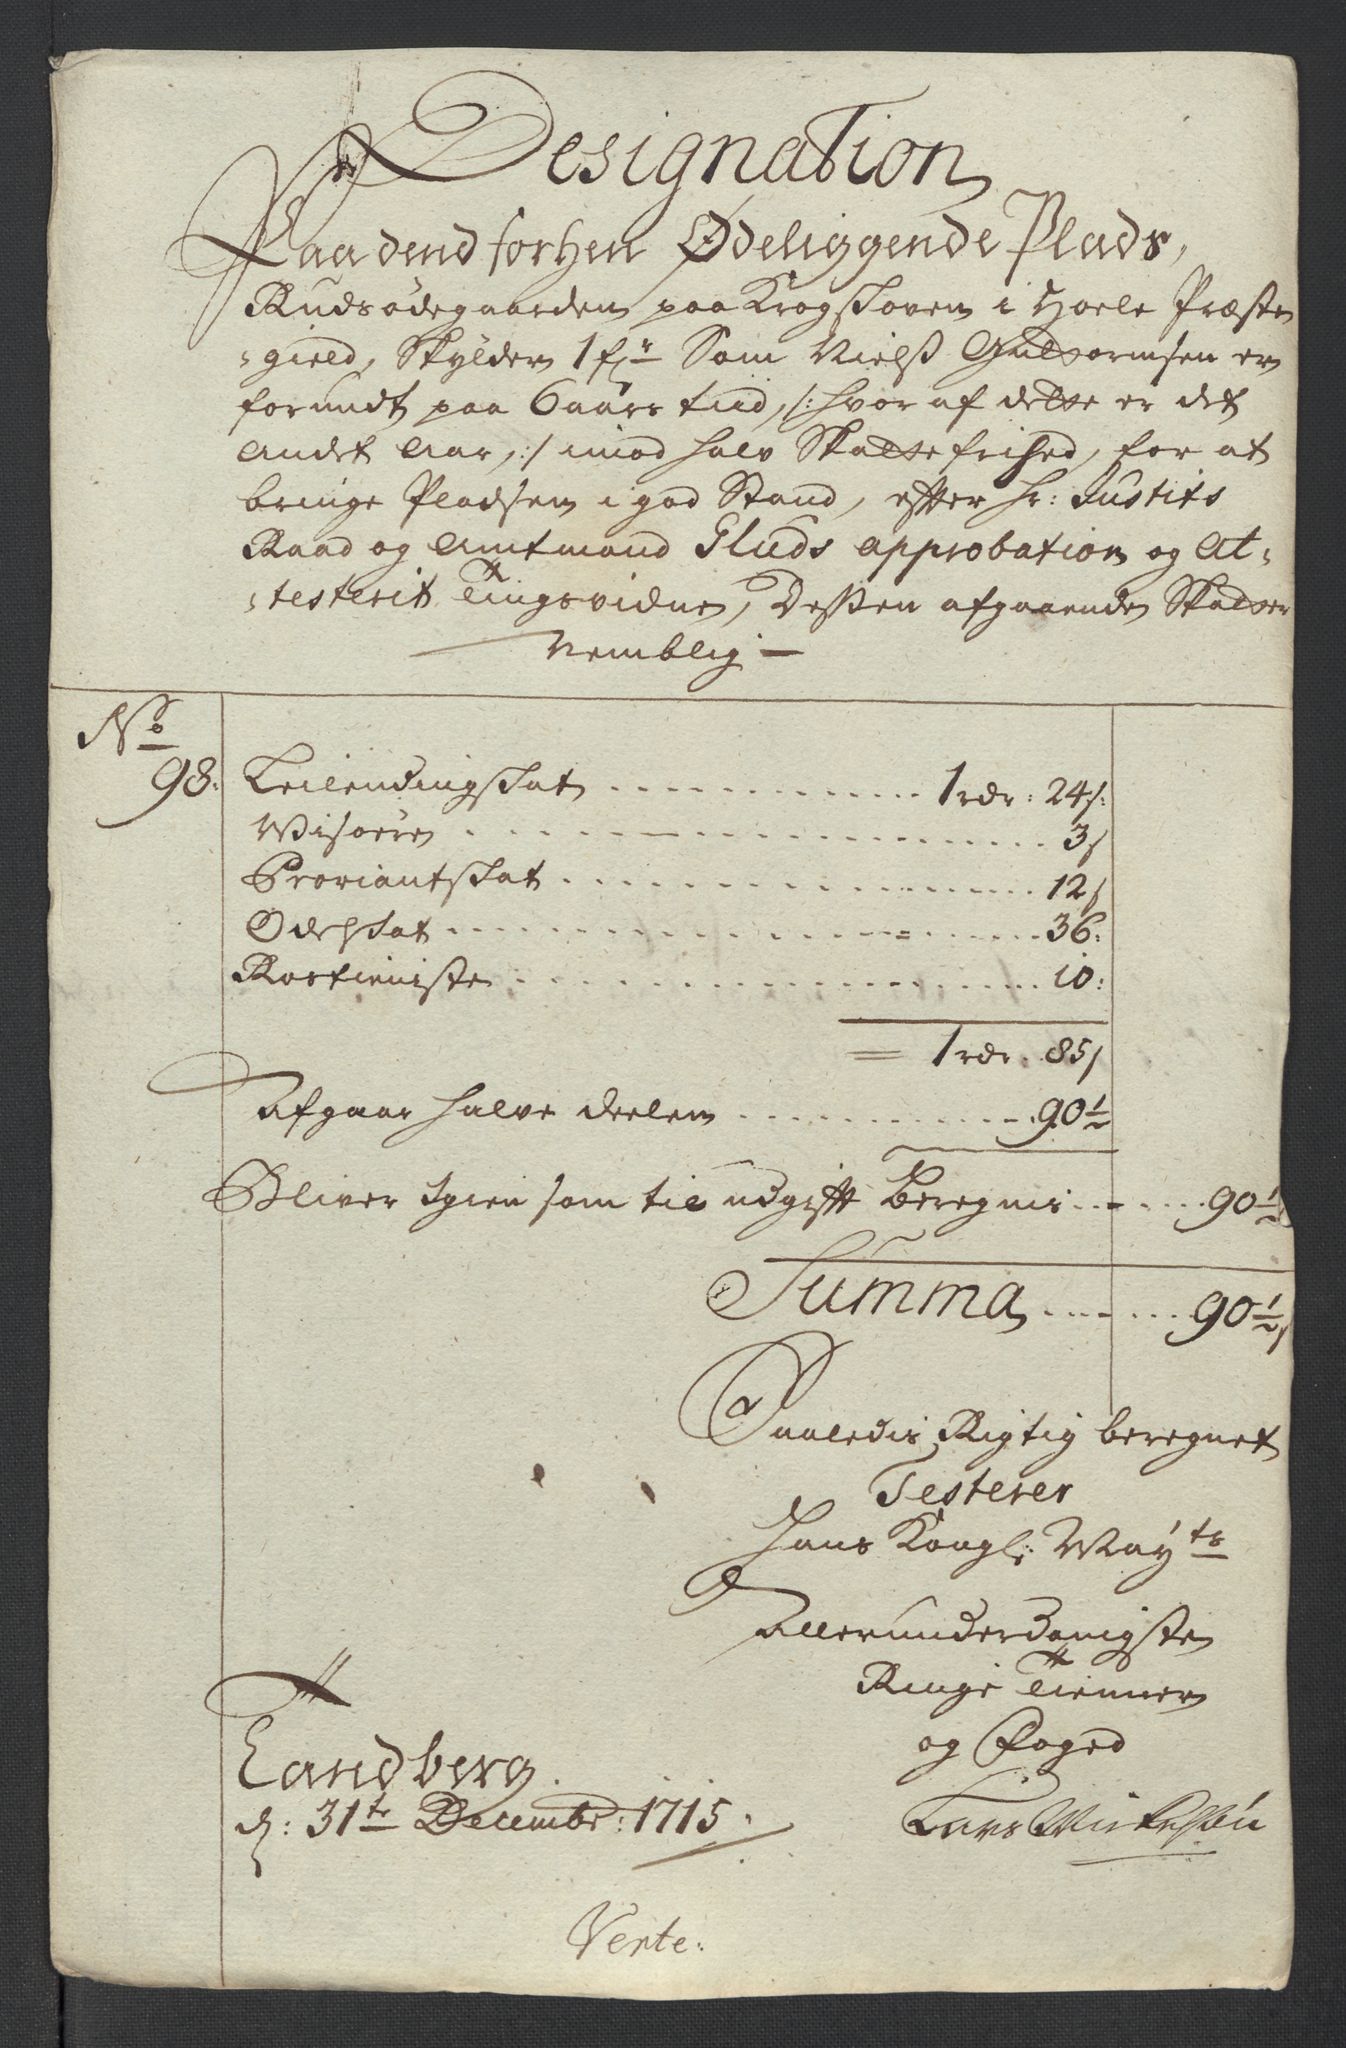 Designation
Paa dend forhen Ødeliggende Plads,
Rudsødegaarden paa Krogskoven i Hoele Præste
gield, Skylder 1 fr Som Nielss Guttormsen er
forundt paa 6 aars tiid, /: hvor af dette er det
Andet Aar, :/ imod halv Skattefrihed, for at
bringe Pladsen i god Stand, efter hr: Justits
Raad og Amtmand Gluds approbation og At-
-testerit Tingsvidne, Dessen afgaaende Skatter
Nemblig —
No
98. Leilendingskat 1 rdr: 24 s:
Visøere 3 s
Proviantskat 12 s
Odelskat 36:
Rostieniste 10:
= 1 rdr. 85 s
Afgaar halve deelen 90½
Bliver Igien som til udgifft Beregnis 90½
Summa 90½ s
Saaledis Rigtig beregnet
Testerer
Hans Kongl: Mayts
Allerunderdanigste
Ringe Tienner
og Foged
Landberg
d: 31te Decembr: 1715.
Verte: